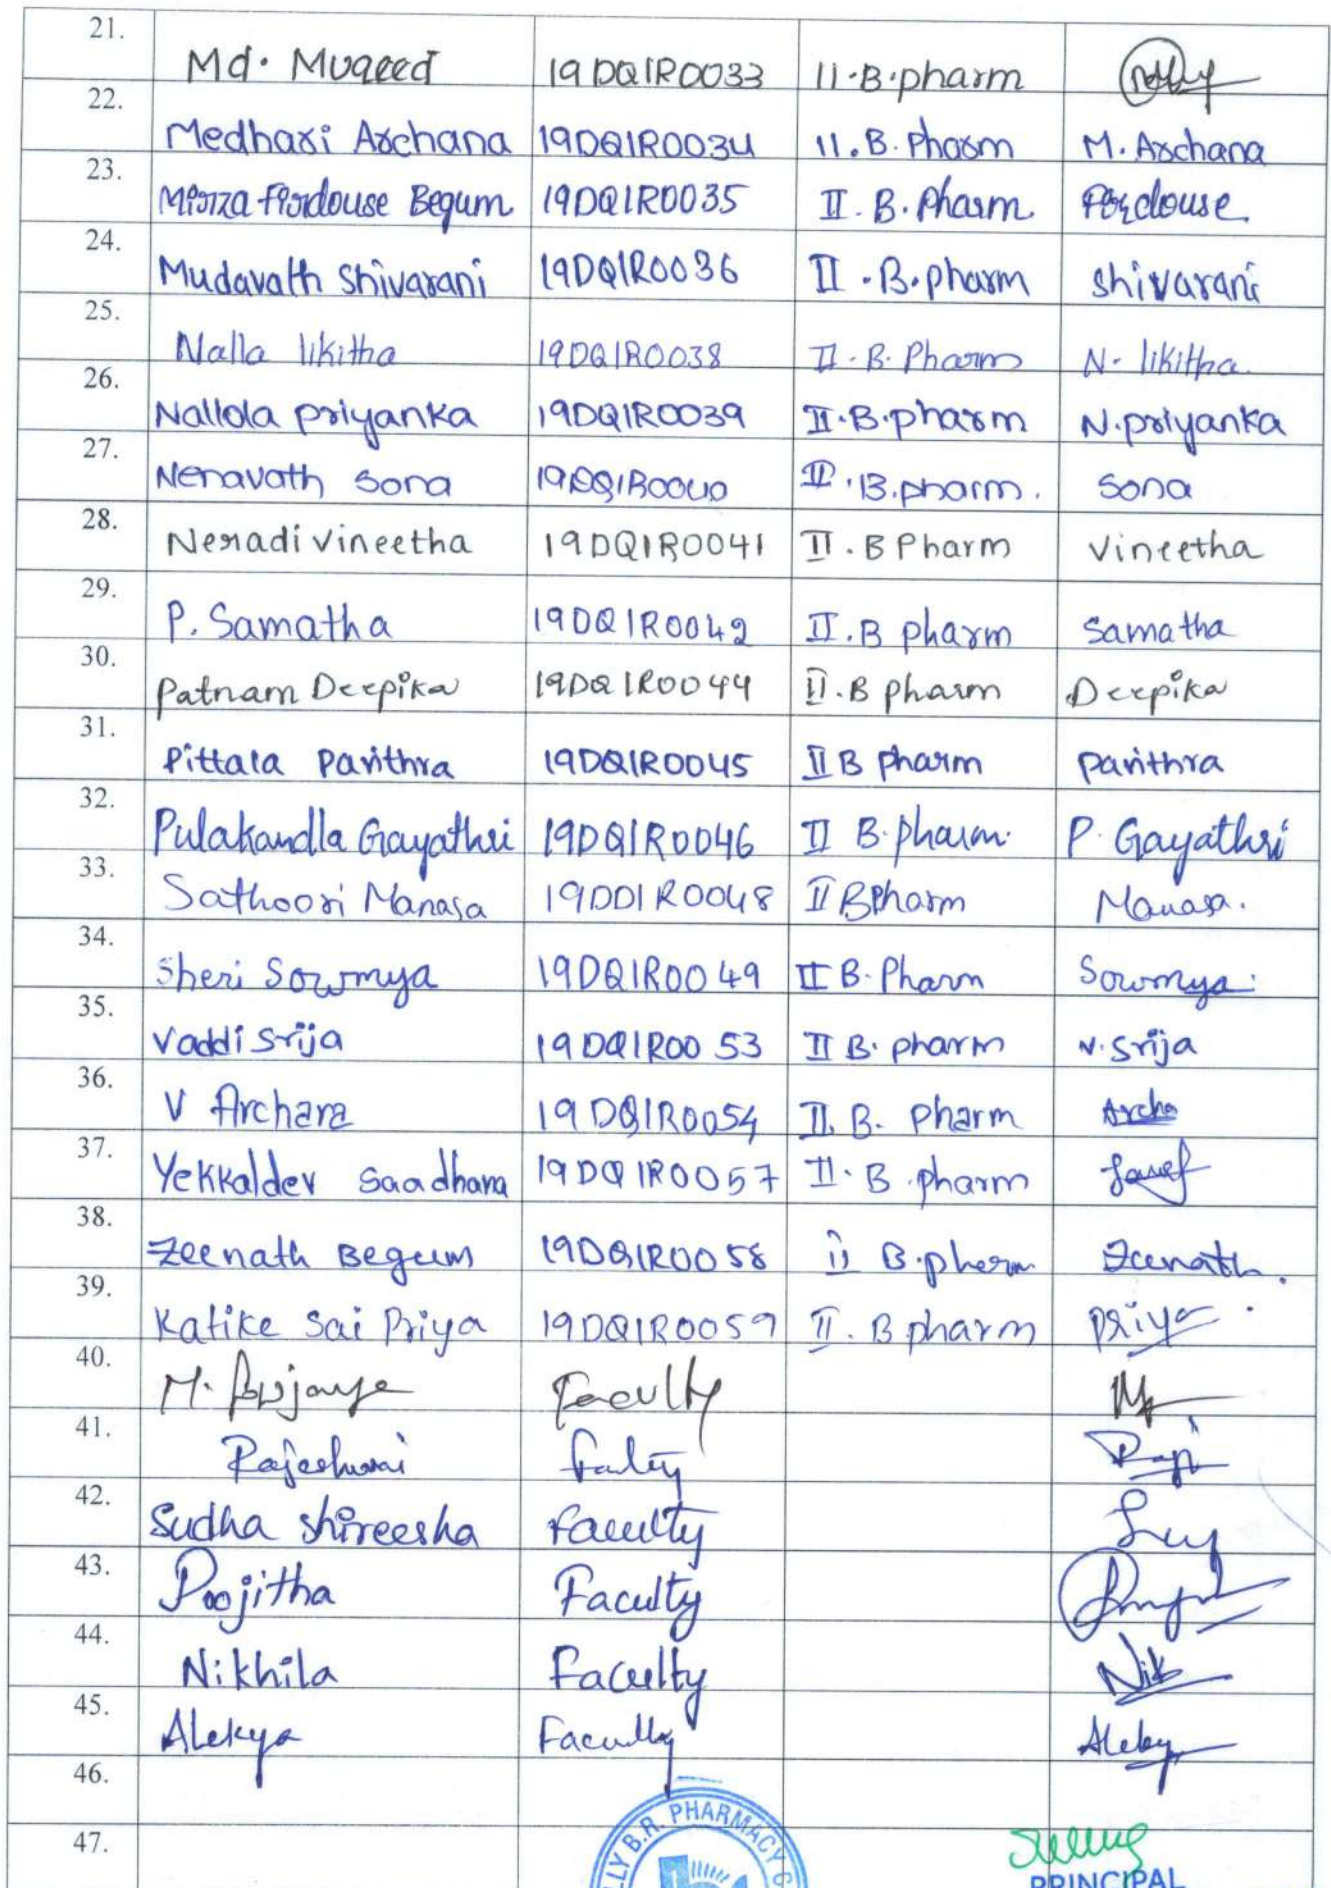 21. Md. Muqeed 19DQ1R0033 II.B.pharm
22. Medhari Archana 19DQ1R0034 II.B.Pharm M.Archana
23. Mirza firdouse Begum 19DQ1R0035 II.B.Pharm. firdouse.
24. Mudavath Shivarani 19DQ1R0036 II.B.pharm shivarani
25. Nalla likitha 19DQ1R0038 II.B.Pharm N-likitha.
26. Nallola priyanka 19DQ1R0039 II.B.pharm N.priyanka
27. Nenavath sona 19DQ1R0040 II.B.pharm. sona
28. Neradi vineetha 19DQ1R0041 II.B Pharm vineetha
29. P. Samatha 19DQ1R0042 II.B pharm samatha
30. Patnam Deepika 19DQ1R0044 II.B pharm Deepika
31. Pittala Pavithra 19DQ1R0045 II B pharm pavithra
32. Pulakandla Gayathri 19DQ1R0046 II B.pharm. P.Gayathri
33. Sathoori Manasa 19DD1R0048 II BPharm Manasa.
34. Sheri Sowmya 19DQ1R0049 II B.Pharm Sowmya.
35. Vaddi Srija 19DQ1R0053 II B.pharm v.Srija
36. V Archana 19DQ1R0054 II.B. Pharm Archa
37. Yekkaldev Saadhana 19DQ1R0057 II.B.pharm
38. Zeenath Begum 19DQ1R0058 II B.pharm Zeenath.
39. Katike Sai Priya 19DQ1R0059 II.B pharm priya.
40. M. Faculty
41. Rajeshwari
42. Sudha shireesha Faculty
43. Poojitha Faculty
44. Nikhila Faculty Nik
45. Alekya Faculty Aleky
46.
47.
LLY B.R. PHARMACY C
PRINCIPAL